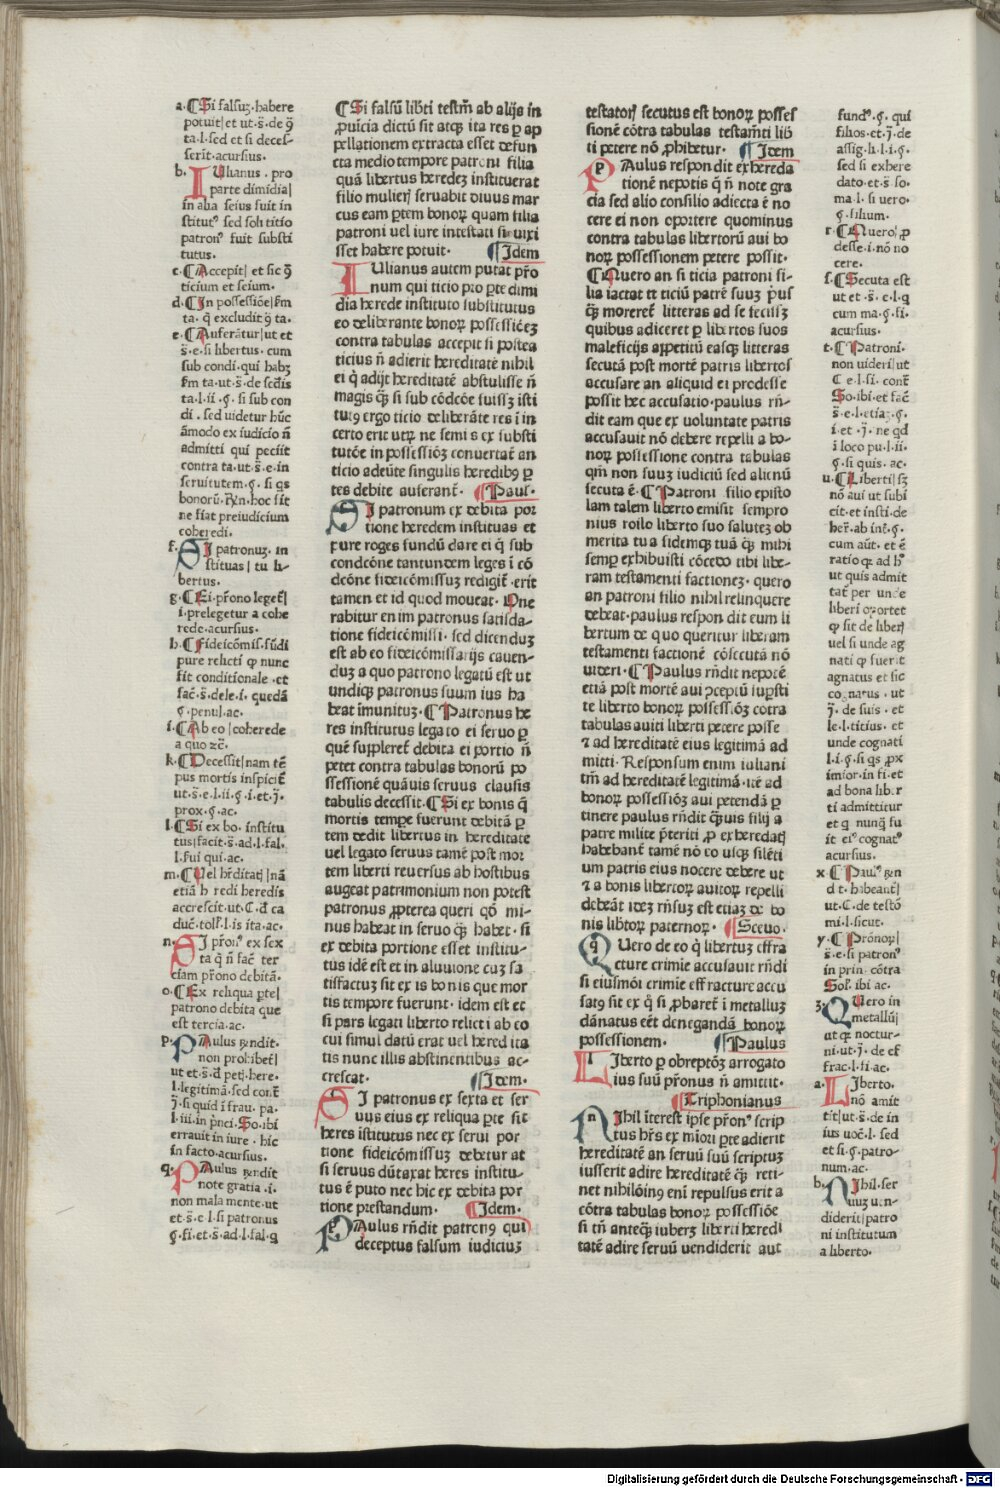 a. ¶Si falsuꝫ·habere
potuit|et ut·s̄·de ꝯ̄
ta·l·sed et si deces-
serit·acursius.
b. IUlianus . pro
parte dimidia|
in alia seius fuit in
stitutꝰ sed soli titio
patronꝰ fuit substi
tutus.
c. ¶Accepit| et sic ꝯ̄
ticium et seium.
d. ¶In possessiōe|ẜm
ta· q̄ excludit ꝯ ta.
e. ¶Auferātur|ut et
s̄·e·si libertus· cum
sub condi·qui habꝫ
ẜm ta·ut·s̄·de sc̄dis
ta·l·ii·§·si sub con
di·sed uidetur hūc
āmodo ex iudicio n̄
admitti qui peciit
contra ta·ut·s̄·e·in
seruitutem·§·si qs
bonorū·℞n·hoc sit
ne fiat preiudicium
coheredi.
f. SI patronuꝫ· in
stituas| tu li-
bertus.
g. ¶Ei p̄rono leget̄|
i·prelegetur a cohe
rede·acursius.
h. ¶Fideicōmis·fūdi
pure relicti ꝙ nunc
fit conditionale·et
fac̄·s̄·dele·i·quedā
§·penul·ac.
i. ¶Ab eo|coherede
a quo ⁊c̄.
k. ¶Decessit|nam tē
pus mortis inspicit̄
ut·s̄·e·l·ii·§·i·et·j̄·
prox·§·ac.
l. ¶Si ex bo· institu
tus|facit·s̄·ad·l·fal·
l·fui qui·ac.
m. ¶Uel hr̄ditati|nā
etiā h redi heredis
accrescit·ut·C·d̄ ca
duc̄·toll̄·l·is ita·ac.
n. SI p̄ronꝰ ex sex
ta q̄ n̄ fac̄ ter
ciam p̄rono debitā.
o. ¶Ex reliqua ꝑte|
patrono debita que
est tercia·ac.
p. PAulus ꝶndit·
non prohibet|
ut et·s̄·d̄ petj·here·
l·legitimā·sed cont̄
j̄·si quid ī frau· pa·
l·iii·in p̄nci·So·ibi
errauit in iure · hic
in facto·acursius.
q. PAulus ꝶndit
note gratia ·i·
non mala mente·ut
et·s̄·e l·si patronus
§·fi·et·s̄·ad·l·fal·q
¶Si falsū lib̄ti testm̄ ab alijs in
ꝓuīcia dictū sit atqꝫ ita res ꝑ ap
pellationem extracta esset defun
cta medio tempore patroni filia
quā libertus heredeꝫ instituerat
filio mulierꝭ seruabit diuus mar
cus eam ꝑtem bonoꝝ quam filia
patroni uel iure intestati si uixi
sset habere potuit. ¶Idem
IUlianus autem putat p̄ro
num qui ticio pro ꝑte dimi
dia herede instituto substitutus
eo deliberante bonoꝝ possessiōeꝫ
contra tabulas accepit si postea
ticius n̄ adierit hereditatē nihil
ei q̄ adijt hereditatē abstulisse n̄
magis qꝫ̄ si sub cōdcōe fuissꝫ isti
tutꝯ ergo ticio deliberāte res ī in
certo erit utꝝ ne semis ex substi
tutōe in possessiōꝫ conuertat̄ an
ticio adeūte singulis heredibꝯ ꝑ
tes debite auferant̄. ¶Paul.
SI patronum ex debita por
tione heredem instituas et
pure roges fundū dare ei q̄ sub
condcōne tantundem leges ī cō
dcōne fideicōmissuꝫ redigit̄·erit
tamen et id quod moueat· One
rabitur enim patronus satisda-
tione fideicōmissi· sed dicenduꝫ
est ab eo fideicōmissarijs cauen-
duꝫ a quo patrono legatū est ut
undiqꝫ patronus suum ius ha
beat īmunituꝫ·¶Patronus he
res institutus legato ei seruo ꝑ
quē suppleret̄ debita ei portio n̄
petet contra tabulas bonorū po
ssessionē quāuis seruus clausis
tabulis decessit·¶Si ex bonis q̄
mortis tempe fuerunt debitā ꝑ
tem dedit libertus in hereditate
uel legato seruus tamē post mor
tem liberti reuersus ab hostibus
augeat patrimonium non potest
patronus ꝓpterea queri qō mi-
nus habeat in seruo qꝫ̄ habet· si
ex debita portione esset institu-
tus idē est et in aluuione cuꝫ sa
tisfactuꝫ sit ex is bonis que mor
tis tempore fuerunt· idem est et
si pars legati liberto relicti ab eo
cui simul datū erat uel heredita
tis nunc illis abstinentibus ac-
crescat. ¶Idem.
SI patronus ex sexta et ser
uus eius ex reliqua ꝑte sit
heres īstitutus nec ex serui por
tione fideicōmissuꝫ debetur at
si seruus dūtaxat heres institu-
tus ē puto nec hic ex debita por
tione prestandum. ¶Idem.
PAulus rn̄dit patronꝯ qui
deceptus falsum iudiciuꝫ
testatorꝭ secutus est bonoꝝ posses
sionē cōtra tabulas testam̄ti lib̄
ti petere nō ꝓhibetur. ¶Idem
PAulus respondit exhereda
tionē nepotis q̄ n̄ note gra
cia sed alio consilio adiecta ē no
cere ei non oportere quominus
contra tabulas libertorū aui bo
noꝝ possessionem petere possit·
¶Quero an si ticia patroni fi-
lia iactat te ticiū patrē suuꝫ p̄us
qꝫ̄ moreret̄ litteras ad se fecissꝫ
quibus adiceret ꝑ libertos suos
maleficijs appetitū easqꝫ litteras
secutā post mortē patris libertos
accusare an aliquid ei prodesse
possit hec accusatio·paulus rn̄-
dit eam que ex uoluntate patris
accusauit nō debere repelli a bo-
noꝝ possessione contra tabulas
qm̄ non suuꝫ iudiciū sed alienū
secuta ē·¶Patroni filio episto
lam talem liberto emisit sempro
nius zoilo liberto suo saluteꝫ ob
merita tua fidemqꝫ tuā qꝫ̄ mihi
semꝑ exhibuisti cōcedo tibi libe-
ram testamenti factioneꝫ· quero
an patroni filio nihil relinquere
debeat·paulus respondit eum li
bertum de quo queritur liberam
testamenti factionē cōsecutā nō
uideri·¶Paulus rn̄dit nepotē
etiā post mortē aui ꝯceptū iuꝑsti
te liberto bonoꝝ possessiōꝫ cotra
tabulas auiti liberti petere posse
⁊ ad hereditatē eius legitimā ad
mitti· Responsum enim iuliani
tm̄ ad hereditatē legitimā·itē ad
bonoꝝ possessiōꝫ aui petendā ꝑ
tinere paulus rn̄dit qꝫ̄uis filij a
patre milite p̄teriti ꝓ exheredatꝭ
habebant̄ tamē nō eo usqꝫ silēti
um patris eius nocere debere ut
⁊ a bonis libertoꝝ auitoꝝ repelli
debeāt idеꝫ rn̄suꝫ est etiaꝫ de bo
nis lib̄toꝝ paternoꝝ. ¶Sceuo.
QUero de eo q̄ libertuꝫ effra
cture crimīe accusauit rn̄di
si eiusmōi crimīe effracture accu
satꝯ sit ex q̄ si ꝓbaret̄ ī metalluꝫ
dānatus eēt denegandā bonoꝝ
possessionem. ¶Paulus
LIberto ꝑ obreptōꝫ arrogato
ius suū p̄ronus n̄ amittit.
¶Triphonianus
NIhil īterest ipse p̄ronꝰ scrip
tus hr̄s ex miori ꝑte adierit
hereditatē an seruū suū scriptuꝫ
iusserit adire hereditatē qꝫ̄ reti-
net nihilōinꝯ enī repulsus erit a
cōtra tabulas bonoꝝ possessiōe
si tn̄ anteqꝫ̄ iuberꝫ liberti heredi
tatē adire seruū uendiderit aut
fundꝰ·§· qui
filios·et·j̄·de
assig·h·l·i·§·
sed si exhere
dato·et·s̄·so·
ma·l· si uero·
§·filium.
r. ¶Quero|ꝓ
desse·i·nō no
cere.
s. ¶Secuta est
ut et·s̄·e·l·q
cum ma·§·fi·
acursius.
t. ¶Patroni·
non uideri|ut
C e·l·si·cont̄
So·ibi·et fac̄
s̄·e·l·etiaꝫ·§·
i·et·j̄·ne qd
ī loco pu·l·ii·
§·si quis·ac.
u. ¶Liberti|sꝫ
nō aui ut subi
cit·et insti·de
her̄·ab int̄·§·
cum aūt·et ē
ratio qꝛ ad hꝰ
ut quis admit
tat̄ per unde
liberi oportet
ꝙ sit de liberꝭ
uel si unde ag
nati ꝙ fuerit
agnatus et sic
cognatus · ut
j̄· de suis · et
le·l·titius· et
unde cognati
l·i·§·si qs ꝓx
imior·in fi·et
ad bona lib̄r
ti admittitur
et q nunqꝫ fu
it eiꝰ cognatꝰ
acursius.
x. ¶Paulꝰ ꝶn
d t· habeant̄|
ut·C·de testō
mi·l·sicut.
y. ¶P̄ronoꝝ|
s̄·e·si patronꝰ
in prin· cōtra
Sol̄· ibi ac.
z. QUero in
metallū|
ut qꝛ noctur-
ni·ut·j̄·de ef
frac·l·fi·ac.
a. LIberto·
nō amit
tit|ut·s̄·de in
ius uoc̄·l· sed
et si·§·patro-
num·ac.
b. NIhil·ser
uuꝫ uēn-
diderit|patro
ni institutum
a liberto.
Digitalisierung gefördert durch die Deutsche Forschungsgemeinschaft - DFG